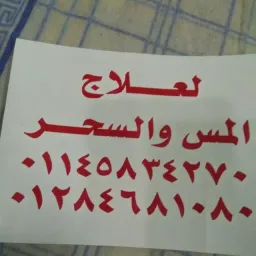 لعـــــلاج
المس والسحــر
٠١١٤٥٨٣٤٢٧٠
٠١٢٨٤٦٨١٠٨٠